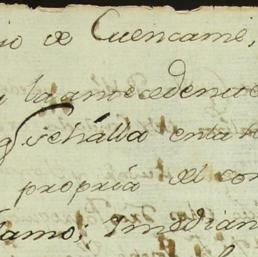 io de Cuencamé,
la antecedente
q se halla en la
propria del con
lamo; Imedian